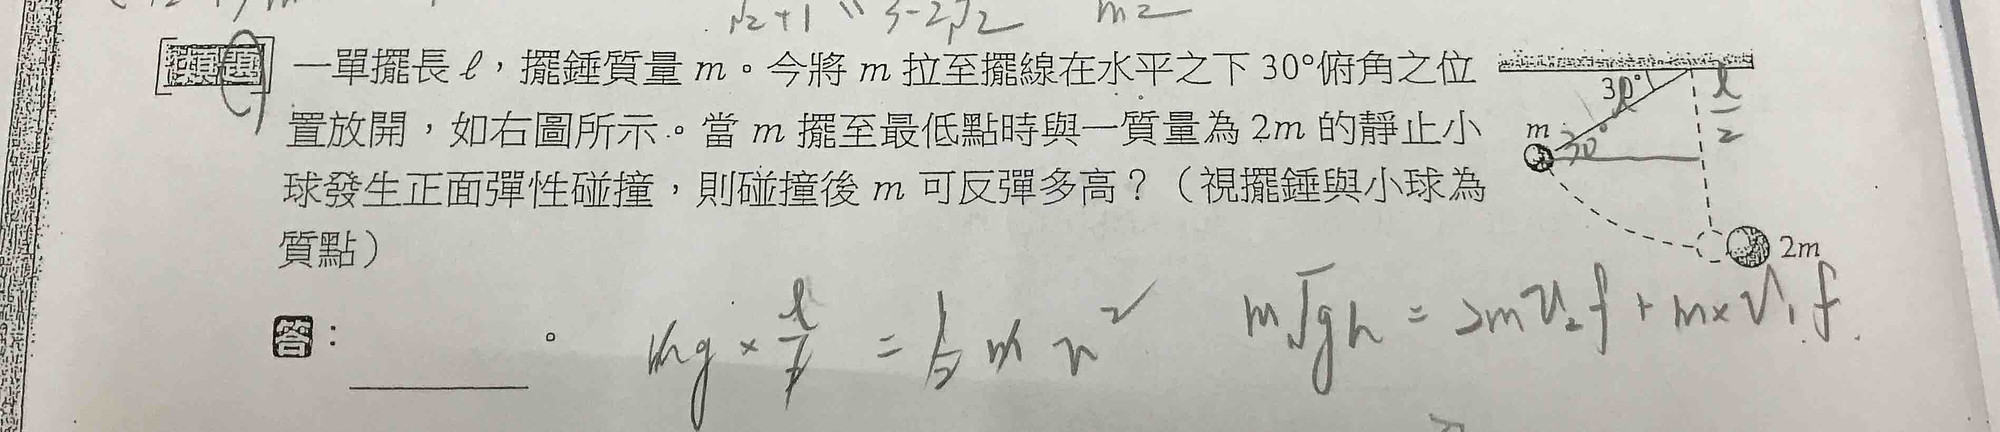 √2+1 3-2√2 m2
類題 一單擺長 ℓ，擺錘質量 m。今將 m 拉至擺線在水平之下 30°俯角之位
置放開，如右圖所示。當 m 擺至最低點時與一質量為 2m 的靜止小
球發生正面彈性碰撞，則碰撞後 m 可反彈多高？（視擺錘與小球為
質點）
30° ℓ ℓ/2
m 30°
2m
答：______。
mg × ℓ/2 = 1/2 m v²
m√gh = 2m v₂f + m× v₁f